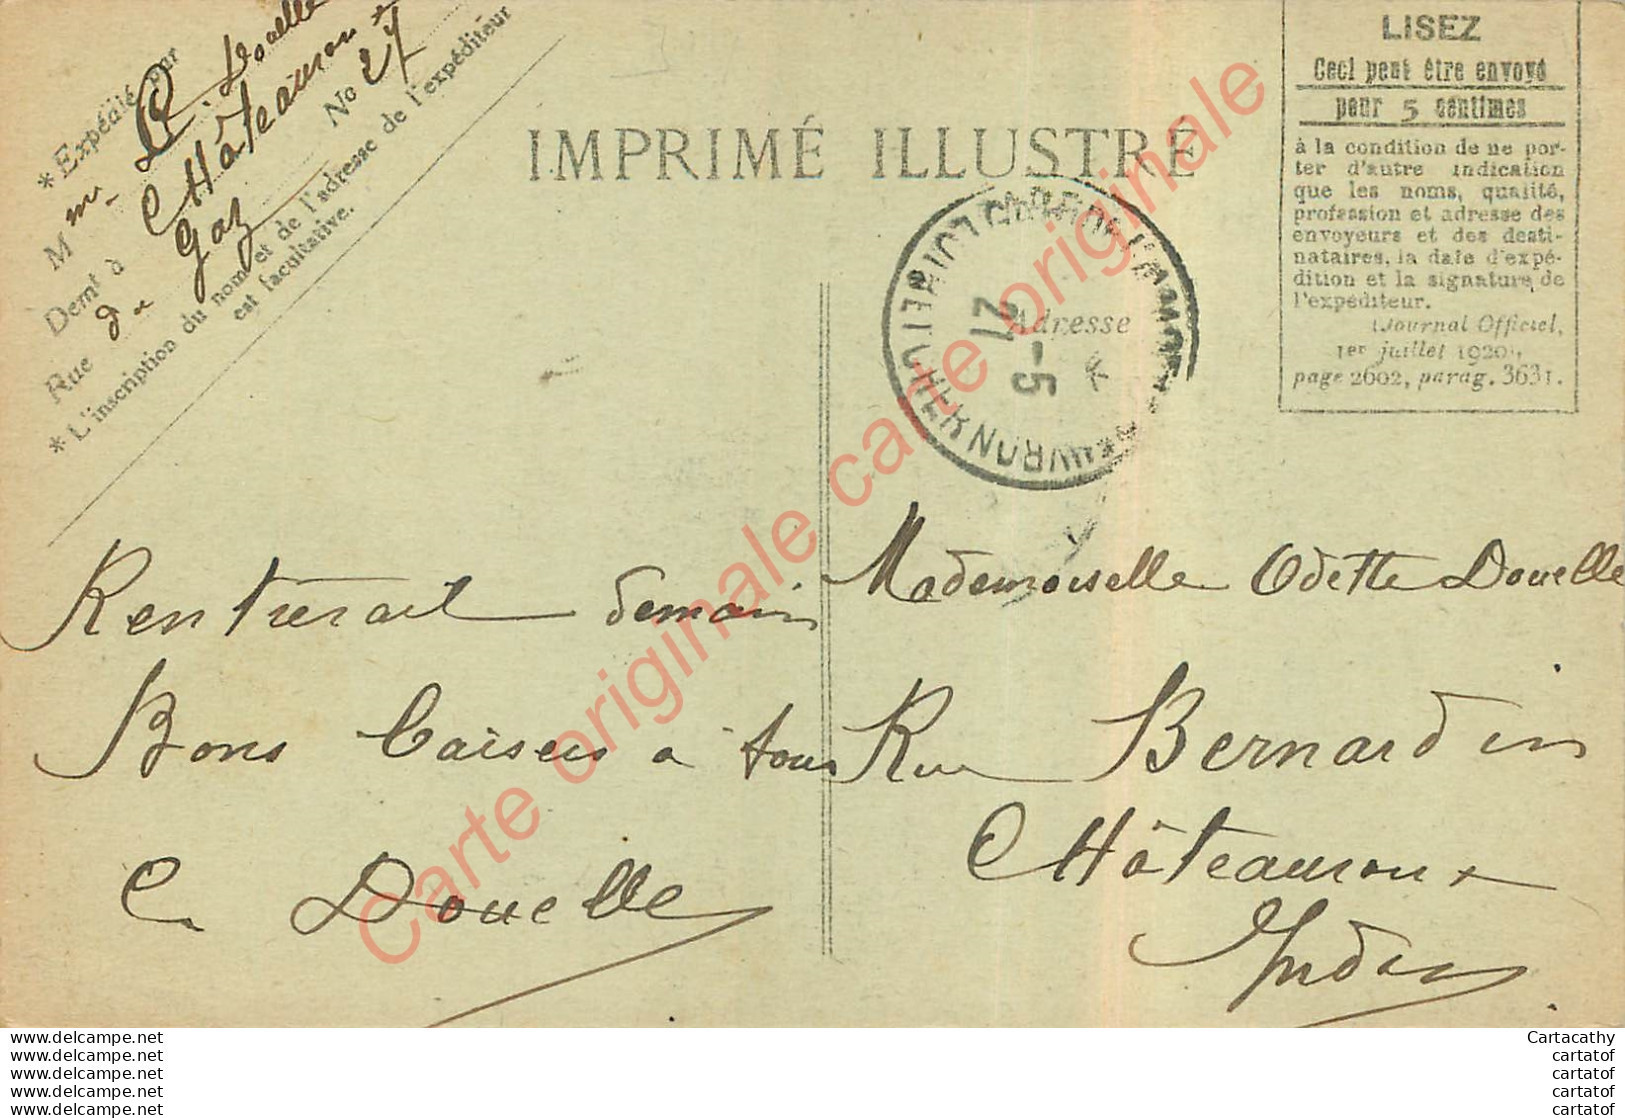 * Expédié par
M m. C. Douelle
Demt à Châteauroux
Rue du Gaz No 27
* L'inscription du nom et de l'adresse de l'expéditeur
est facultative.
IMPRIMÉ ILLUSTRÉ
LISEZ
Ceci peut être envoyé
pour 5 centimes
à la condition de ne por-
ter d'autre indication
que les noms, qualité,
profession et adresse des
envoyeurs et des desti-
nataires, la date d'expé-
dition et la signature de
l'expéditeur.
(Journal Officiel,
1er juillet 1920,
page 2602, parag. 3631.
Adresse
21 -5
LOIR ET CHER
Rentrerait demain
Bons baisers à tous
C Douelle
Mademoiselle Odette Douelle
Rue Bernardin
Châteauroux
Indre
Carte originale carte originale carte originale
delcampe.net
delcampe.net
delcampe.net
delcampe.net
delcampe.net
Cartacathy
cartatof
cartatof
cartatof
cartatof